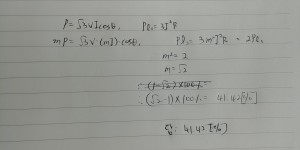 P = √3VIcosθ, Pℓ₁ = 3I²R
mP = √3V·(mI)·cosθ, Pℓ₂ = 3m²I²R = 2Pℓ₁
m² = 2
m = √2
(1-√2)×100%
∴ (√2-1)×100% = 41.42[%]
답: 41.42[%]